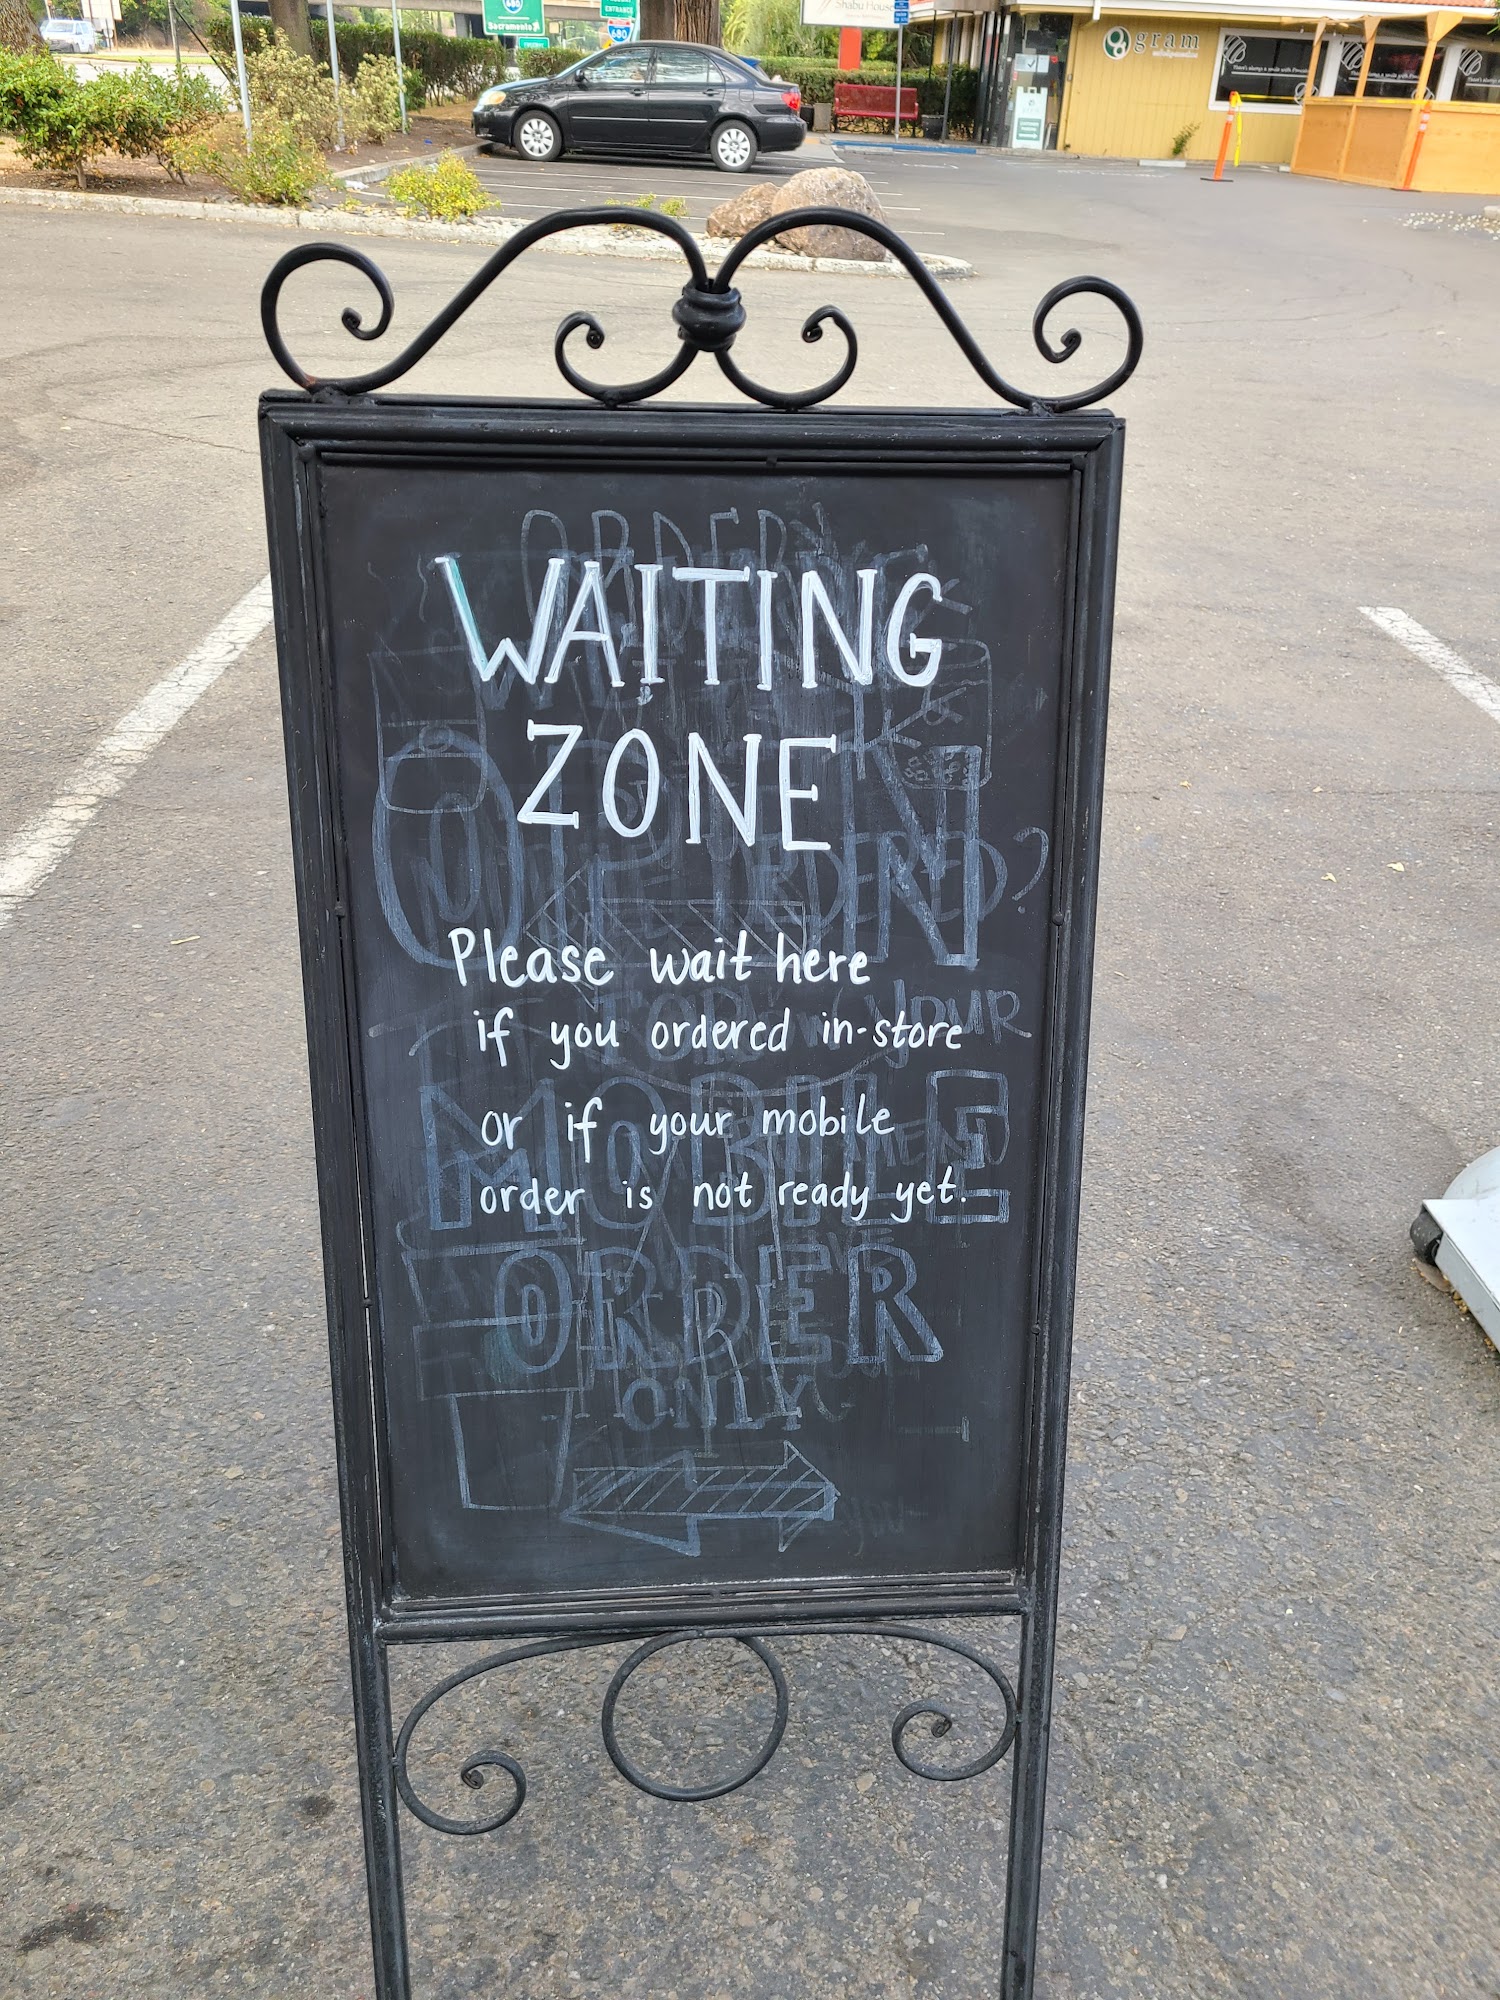 680
Sacramento
ENTRANCE
680
Shabu House
gram
WAITING
ZONE
Please wait here
if you ordered in-store
or if your mobile
order is not ready yet.
ORDER
ORDERED?
YOUR
MOBILE
ORDER
ONLY
you